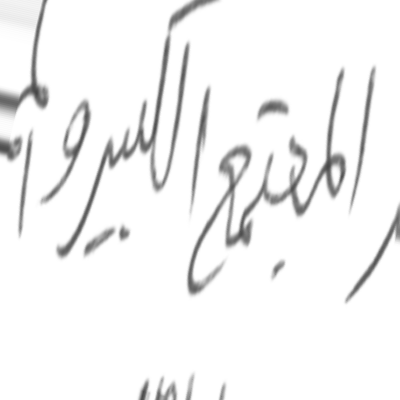 المجتمع الكبير و